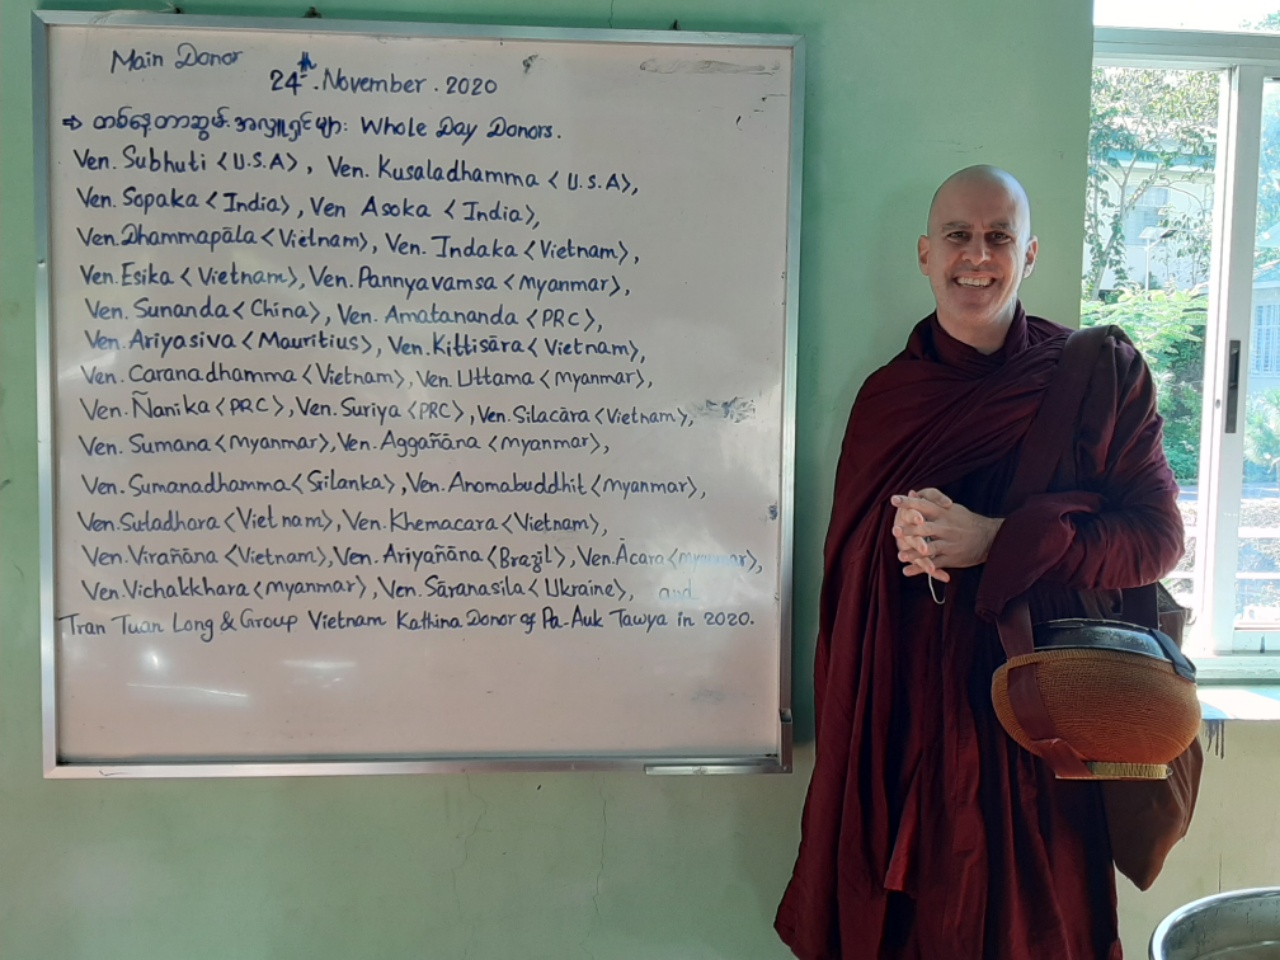 Main Donor
24th. November. 2020
⇒ တစ်နေ့တာဆွမ်းအလှူရှင်များ Whole Day Donors.
Ven. Subhuti <U.S.A>, Ven. Kusaladhamma <U.S.A>,
Ven. Sopaka <India>, Ven Asoka <India>,
Ven. Dhammapāla <Vietnam>, Ven. Indaka <Vietnam>,
Ven. Esika <Vietnam>, Ven. Pannyavamsa <Myanmar>,
Ven. Sunanda <China>, Ven. Amatananda <PRC>,
Ven. Ariyasiva <Mauritius>, Ven. Kittisāra <Vietnam>,
Ven. Caranadhamma <Vietnam>, Ven. Uttama <Myanmar>,
Ven. Ñanika <PRC>, Ven. Suriya <PRC>, Ven. Silacāra <Vietnam>,
Ven. Sumana <Myanmar>, Ven. Aggañāna <Myanmar>,
Ven. Sumanadhamma <Srilanka>, Ven. Anomabuddhit <Myanmar>,
Ven. Sutadhara <Viet nam>, Ven. Khemacara <Vietnam>,
Ven. Virañāna <Vietnam>, Ven. Ariyañāna <Brazil>, Ven. Ācara <Myanmar>,
Ven. Vichakkhara <Myanmar>, Ven. Sāranasila <Ukraine>, and
Tran Tuan Long & Group Vietnam Kathina Donor of Pa-Auk Tawya in 2020.